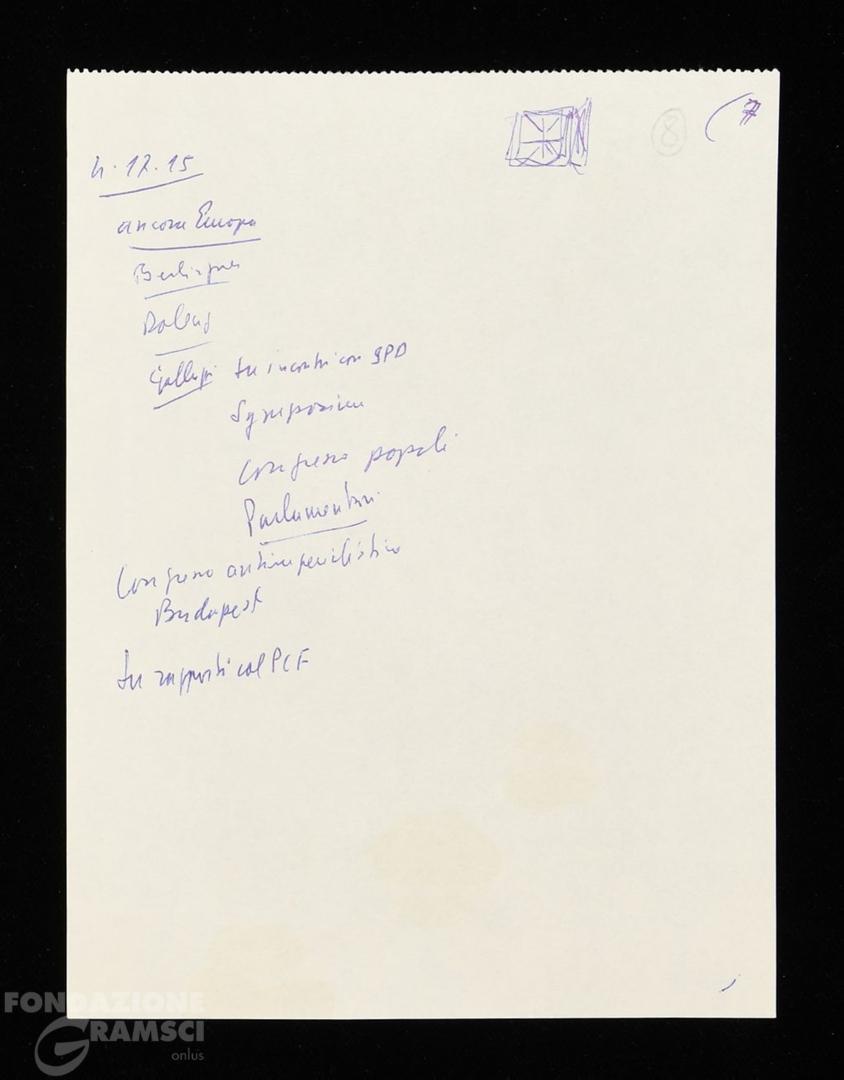 8
h. 17.15
ancora Europa
Berlinguer
Galluzzi su incontri con SPD
Symposium
Congresso popoli
Parlamentari
Congresso antimperialistico
Budapest
su rapporti col PCF
FONDAZIONE
GRAMSCI
onlus